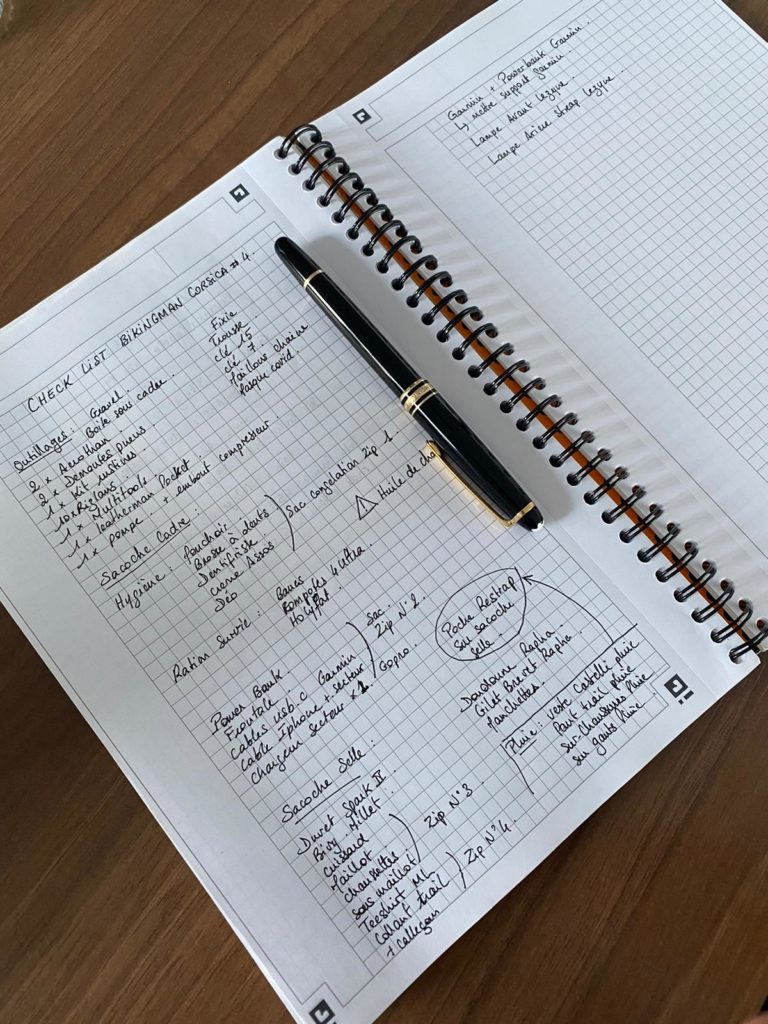 CHECK LIST BIKINGMAN CORSICA # 4.
Outillages : Gravel.
Boite sous cadre.
2 x Aerothan
2 x Démontes pneus
1 x Kit rustines
10 x Rizlans
1 x Multitools
1 x Leatherman Pocket
1 x Pompe + embout compresseur.
Fixie
Trousse
clé 15
clé 7
Maillons chaine
Masque covid.
Sacoche Cadre :
Hygiène : Mouchoir
Brosse à dents
Dentifrice
creme Assos
Déo
Sac congelation Zip 1
Huile de cha
Ration Survie : Barres
Compotes 4 Ultra
Holyfat
Power Bank
Frontale
Cables usb.c Garmin
Cable Iphone + secteur
Chargeur secteur x 1
Sac
Zip N° 2.
Gopro.
Sacoche Selle :
Duvet Spark II
Bivy Millet
Cuissard
Maillot
chaussettes
sous maillot
Teeshirt ML
Collant trail
+ calleçon
Zip N° 3
Zip N° 4.
Poche Restrap
sous sacoche
selle.
Doudoune Rapha
Gilet Brevet Rapha
Manchettes
Pluie : veste Castelli pluie
Pant trail pluie
sur-chaussures pluie
sur gants pluie.
Garmin + Powerbank Garmin.
↳ mettre support garmin.
Lampe Avant Lezyne.
Lampe Arière Strap Lezyne.